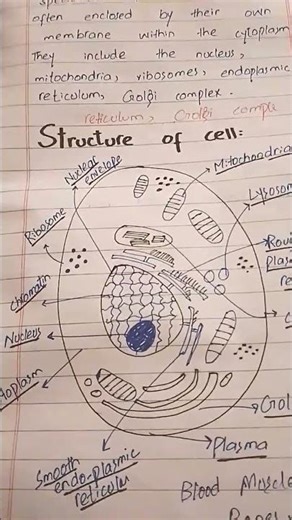 often enclosed by their own
membrane within the cytoplasm
They include the nucleus,
mitochondria, ribosomes, endoplasmic
reticulum, Golgi complex.
reticulum, Golgi compu
Structure of cell:
Nuclear
envelope
Mitochondria
Lysosom
Ribosome
Rou
Plasm
re
Chromatin
Nucleus
toplasm
Gol
Plasma
Smooth
endoplasmic
reticulu
Blood Muscle
Bones